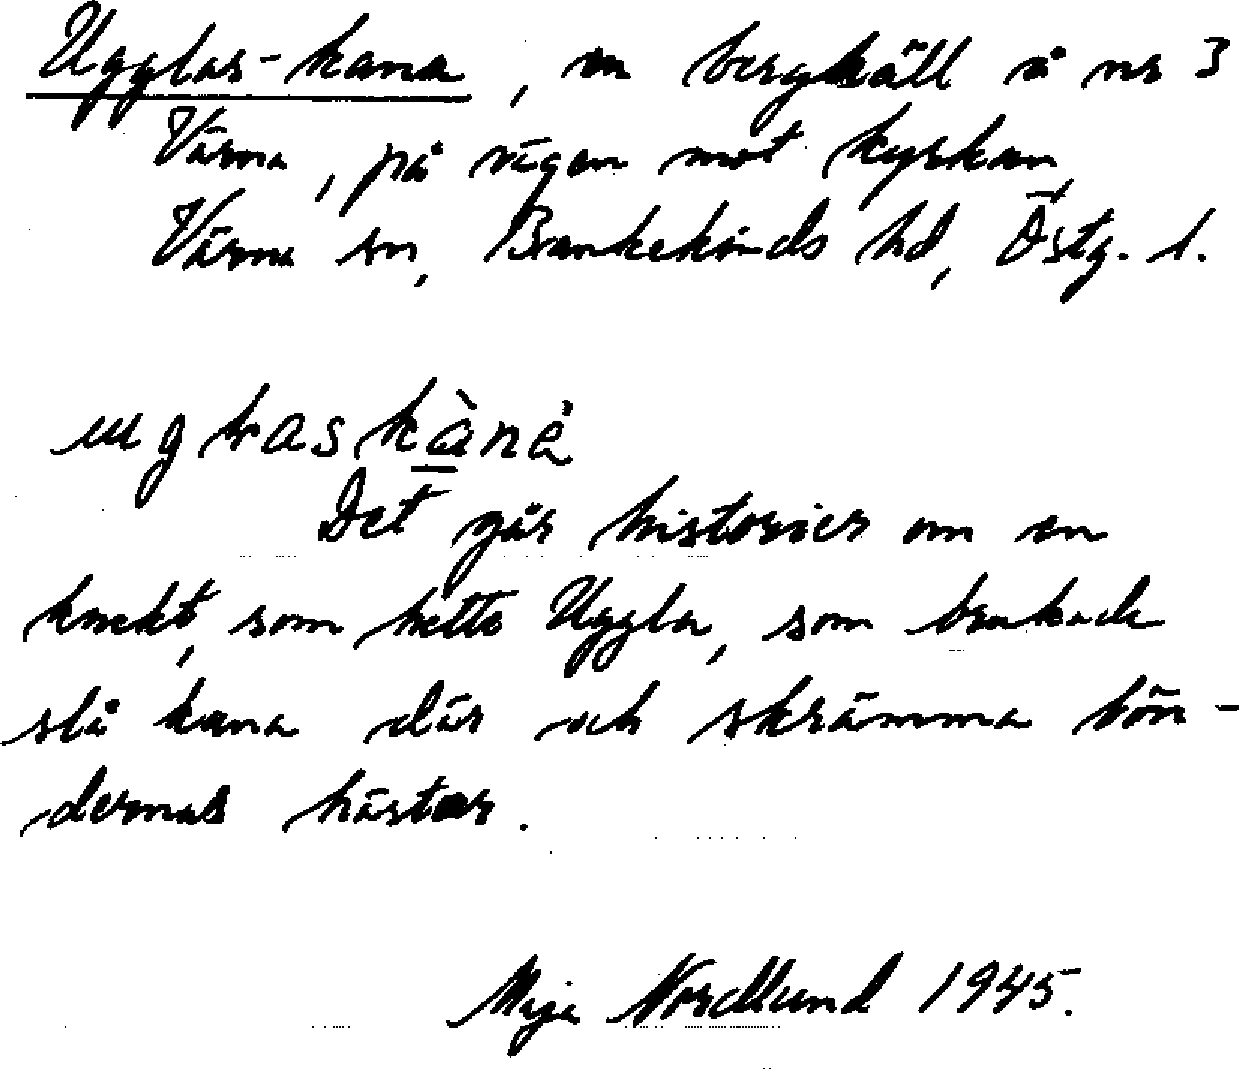 Ugglas-kana, en berghäll å nr 3
Värna, på vägen mot kyrkan,
Värna sn, Bankekinds hd, Östg. l.
Det går historier om en
knekt, som hette Uggla, som brukade
slå kana där och skrämma bön-
dernas hästar.
Maja Nordlund 1945.